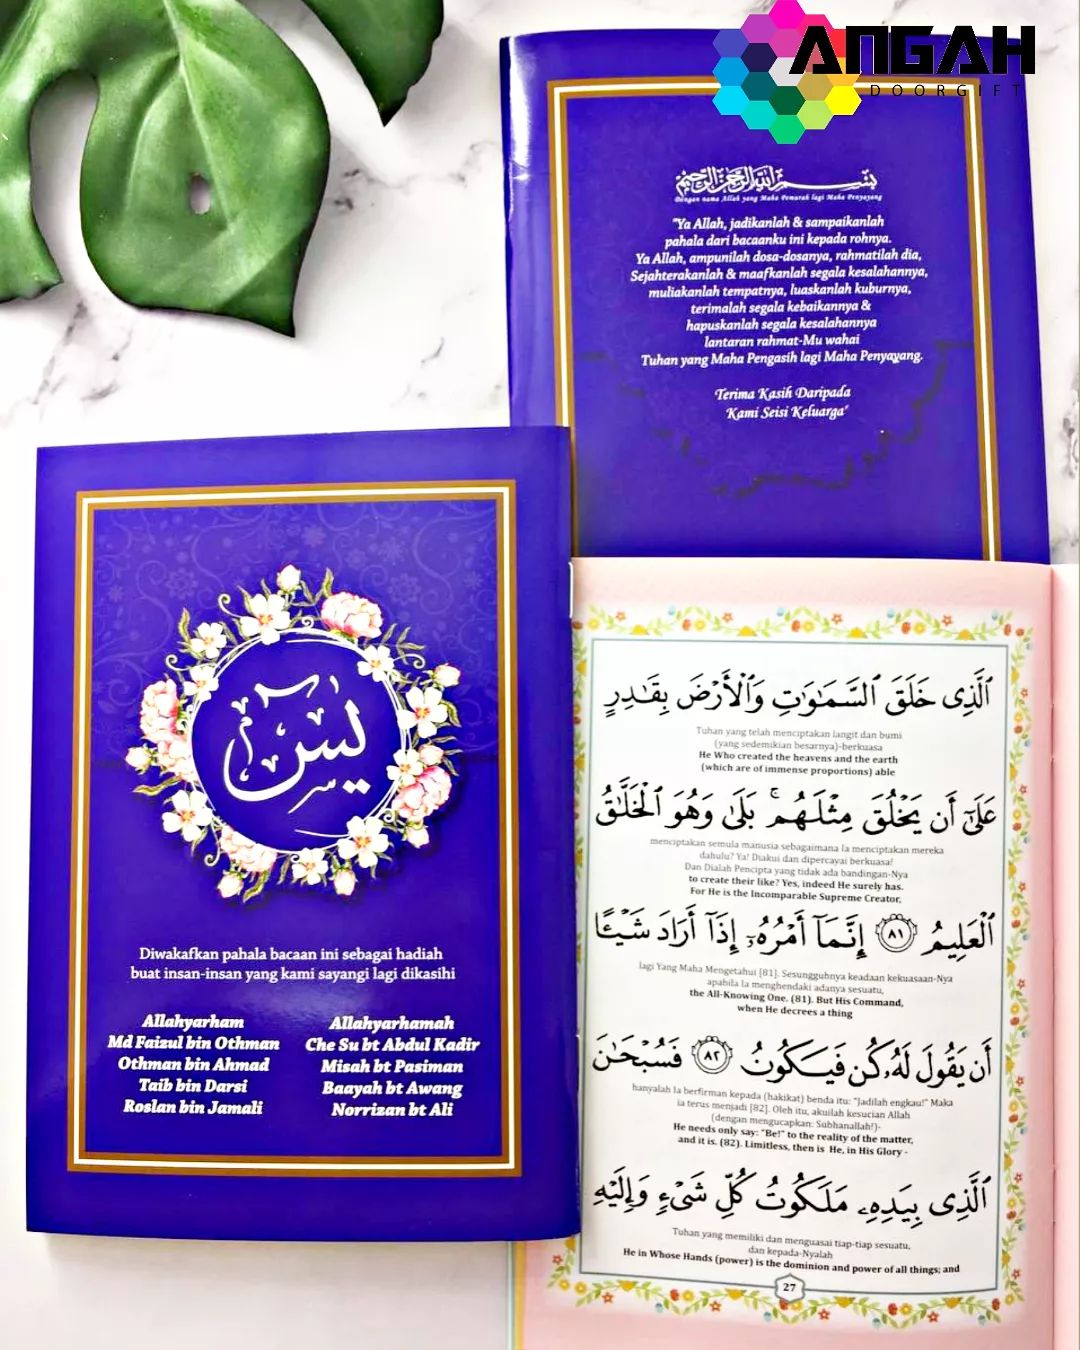 ANGAH
DOORGIFT
بسم الله الرحمن الرحيم
Dengan nama Allah yang Maha Pemurah lagi Maha Penyayang
"Ya Allah, jadikanlah & sampaikanlah
pahala dari bacaanku ini kepada rohnya.
Ya Allah, ampunilah dosa-dosanya, rahmatilah dia,
Sejahterakanlah & maafkanlah segala kesalahannya,
muliakanlah tempatnya, luaskanlah kuburnya,
terimalah segala kebaikannya &
hapuskanlah segala kesalahannya
lantaran rahmat-Mu wahai
Tuhan yang Maha Pengasih lagi Maha Penyayang.
Terima Kasih Daripada
Kami Seisi Keluarga"
يس
Diwakafkan pahala bacaan ini sebagai hadiah
buat insan-insan yang kami sayangi lagi dikasihi
Allahyarham
Md Faizul bin Othman
Othman bin Ahmad
Taib bin Darsi
Roslan bin Jamali
Allahyarhamah
Che Su bt Abdul Kadir
Misah bt Pasiman
Baayah bt Awang
Norrizan bt Ali
ٱلَّذِى خَلَقَ ٱلسَّمَـٰوَٰتِ وَٱلْأَرْضَ بِقَـٰدِرٍ
Tuhan yang telah menciptakan langit dan bumi
(yang sedemikian besarnya)-berkuasa
He Who created the heavens and the earth
(which are of immense proportions) able
عَلَىٰٓ أَن يَخْلُقَ مِثْلَهُم ۚ بَلَىٰ وَهُوَ ٱلْخَلَّـٰقُ
menciptakan semula manusia sebagaimana Ia menciptakan mereka
dahulu? Ya! Diakui dan dipercayai berkuasa!
Dan Dialah Pencipta yang tidak ada bandingan-Nya
to create their like? Yes, indeed He surely has.
For He is the Incomparable Supreme Creator,
ٱلْعَلِيمُ ٨١ إِنَّمَآ أَمْرُهُۥٓ إِذَآ أَرَادَ شَيْـًٔا
lagi Yang Maha Mengetahui [81]. Sesungguhnya keadaan kekuasaan-Nya
apabila Ia menghendaki adanya sesuatu,
the All-Knowing One. (81). But His Command,
when He decrees a thing
أَن يَقُولَ لَهُۥ كُن فَيَكُونُ ٨٢ فَسُبْحَـٰنَ
hanyalah Ia berfirman kepada (hakikat) benda itu: "Jadilah engkau!" Maka
ia terus menjadi [82]. Oleh itu, akuilah kesucian Allah
(dengan mengucapkan: Subhanallah!)-
He needs only say: "Be!" to the reality of the matter,
and it is. (82). Limitless, then is He, in His Glory -
ٱلَّذِى بِيَدِهِۦ مَلَكُوتُ كُلِّ شَىْءٍ وَإِلَيْهِ
Tuhan yang memiliki dan menguasai tiap-tiap sesuatu,
dan kepada-Nyalah
He in Whose Hands (power) is the dominion and power of all things; and
27